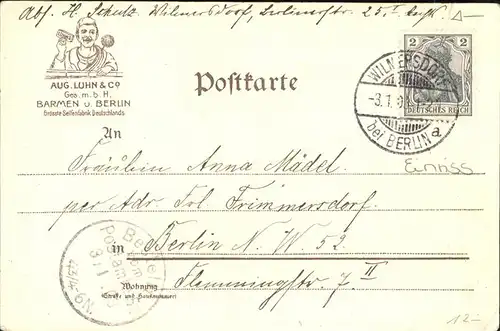 Abs. H. Schulz Wilmersdorf, Berlinerstr. 25
AUG. LUHN & Co
Ges. m. b. H.
BARMEN u. BERLIN
Grösste Seifenfabrik Deutschlands
Postkarte
2 2
DEUTSCHES REICH
WILMERSDORF
-3.1.
bei BERLIN a
Einriss
An
Fräulein Anna Mädel.
per Adr. Frl Frimmersdorf.
in Berlin N. W. 52.
Wohnung Flemmingstr. 7 II
(Straße und Hausnummer)
Berlin
Postamt
3/1
N9
12-